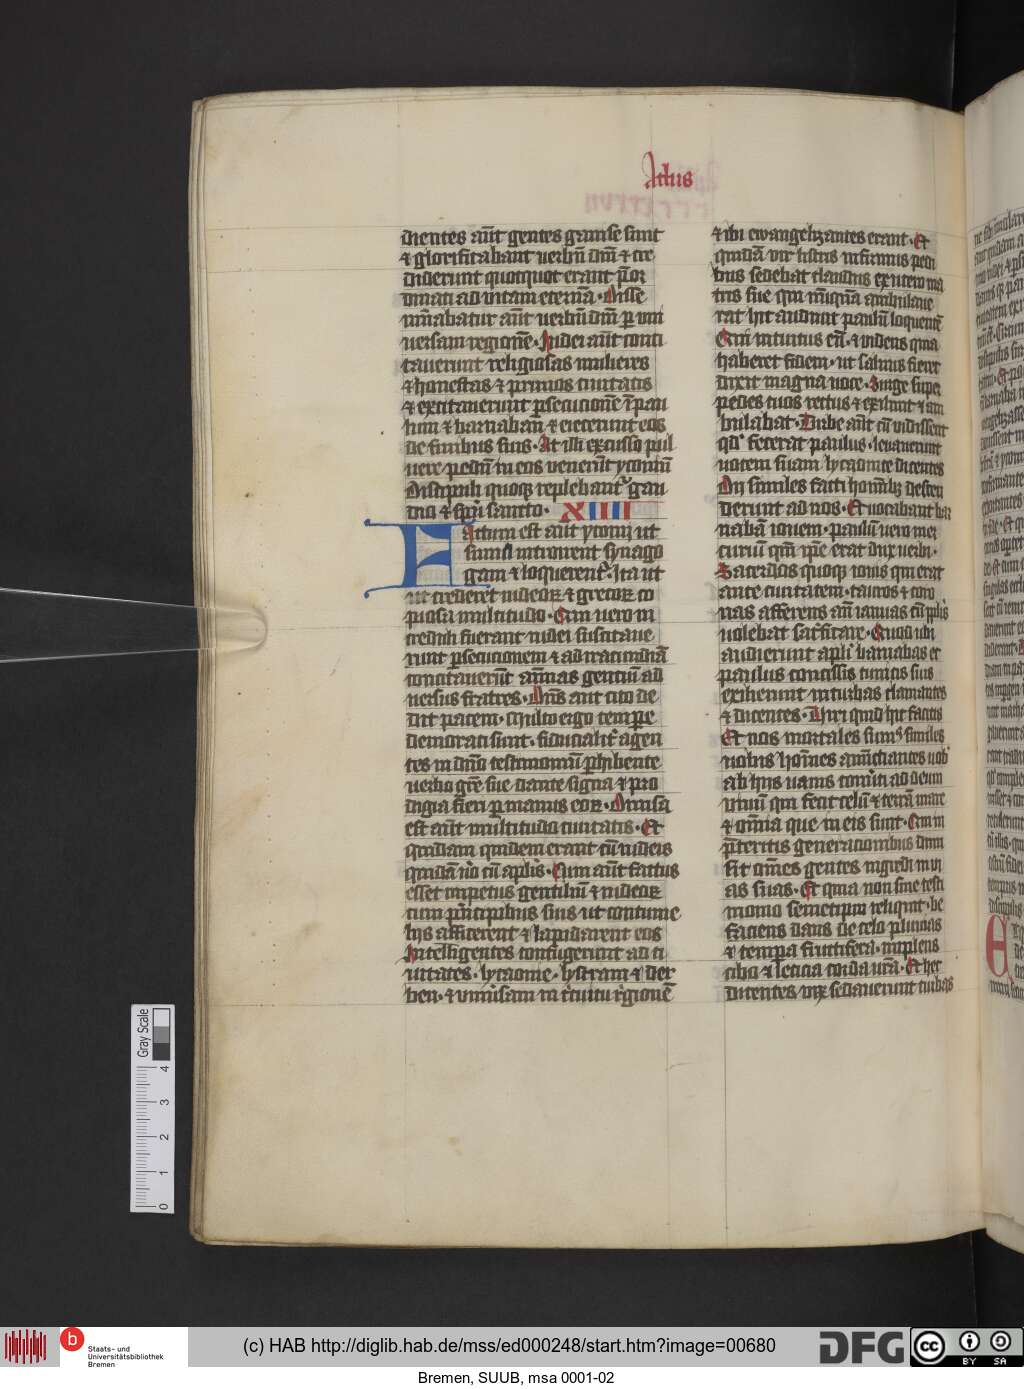 Actus
dientes aūt gentes gauise sunt
⁊ glorificabant uerbū dn̄i ⁊ cre
diderunt quotquot erant p̄or
dinati ad vitam eternā. Disse
minabatur aūt uerbū dn̄i ꝑ uni
uersam regionē. Iudei aūt conci
tauerunt religiosas mulieres
⁊ honestas ⁊ primos ciuitatis
⁊ excitauerunt ꝑsecucionē ī pau
lum ⁊ barnaban ⁊ eiecerunt eos
de finibus suis. At illi excusso pul
uere pedū in eos venerūt yconiū
Discipuli quoqꝫ replebantᷣ gau
dio ⁊ spū sancto. XIIII
Factum est aūt yconij ut
simul introirent synago
gam ⁊ loquerentᷣ. Ita ut
ut crederet iudeoꝝ ⁊ grecoꝝ co
piosa multitudo. Qui uero in
creduli fuerant iudei suscitaue
runt ꝑsecucionem ⁊ ad iracundiā
concitauerūt aīmas gentiū ad
uersus fratres. Dn̄s aūt cito de
dit pacem. Multo ergo tempe
demorati sunt. fiducialitᷣ agen
tes in dn̄o testimoniū ꝑhibente
uerbo gr̄e sue dante signa ⁊ pro
digia fieri ꝑ manus eoꝝ. Diuisa
est aūt multitudo ciuitatis. Et
quidam quidem erant cū iudeis
quidā u̇o cū aplis. Cum aūt factus
esset impetus gentiliū ⁊ iudeoꝝ
cum pͥncipibus suis ut contume
lijs afficerent ⁊ lapidarent eos
Intelligentes confugerunt ad ci
uitates. lycaonie. lystram ⁊ der
ben. ⁊ uniu̇sam in cͥcuitu rͤgionē
⁊ ibi ewangelizantes erant. Et
quidā vir listris infirmus pedi
bus sedebat claudus ex utero ma
tris sue qui nūquā ambulaue
rat hic audiuit paulū loquentē
Qui intuitus eū. ⁊ uidens quia
haberet fidem. ut saluus fieret
dixit magna uoce. Surge super
pedes tuos rectus ⁊ exiliuit ⁊ am
bulabat. Turbe aūt cū vidissent
qd̓ fecerat paulus. leuauerunt
uocem suam lycaonice dicentes
Dij similes facti hoīnibꝫ descen
derunt ad nos. Et vocabant bar
nabā iouem. paulū uero mer
curiū qm̄ ip̄e erat dux uerbi.
Sacerdos quoqꝫ iouis qui erat
ante ciuitatem. tauros ⁊ coro
nas afferens an̄ ianuas cū pp̄lis
uolebat sacͥficare. Quod ubi
audierunt apl̓i barnabas et
paulus concissis tunicis suis
exilierunt in turbas clamantes
⁊ dicentes. Viri quid hic facitis
Et nos mortales sumꝰ similes
uobis hoīnes annūciantes uob̓
ab hijs uanis conu̇ti ad deum
viuū qui fecit celū ⁊ terrā mare
⁊ om̄ia que in eis sunt. Qui in
p̄teritis generacionibus dimi
sit om̄es gentes ingredi in vi
as suas. Et quia non sine testi
monio semetipm̄ reliquit. be
faciens dans de celo pluuias
⁊ tempa fructifera. implens
cibo ⁊ leticia corda ur̄a. Et hec
dicentes vix sedauerunt turbas
Gray Scale
4
3
2
1
0
b
Staats- und
Universitätsbibliothek
Bremen
(c) HAB http://diglib.hab.de/mss/ed000248/start.htm?image=00680
DFG
cc
BY SA
Bremen, SUUB, msa 0001-02